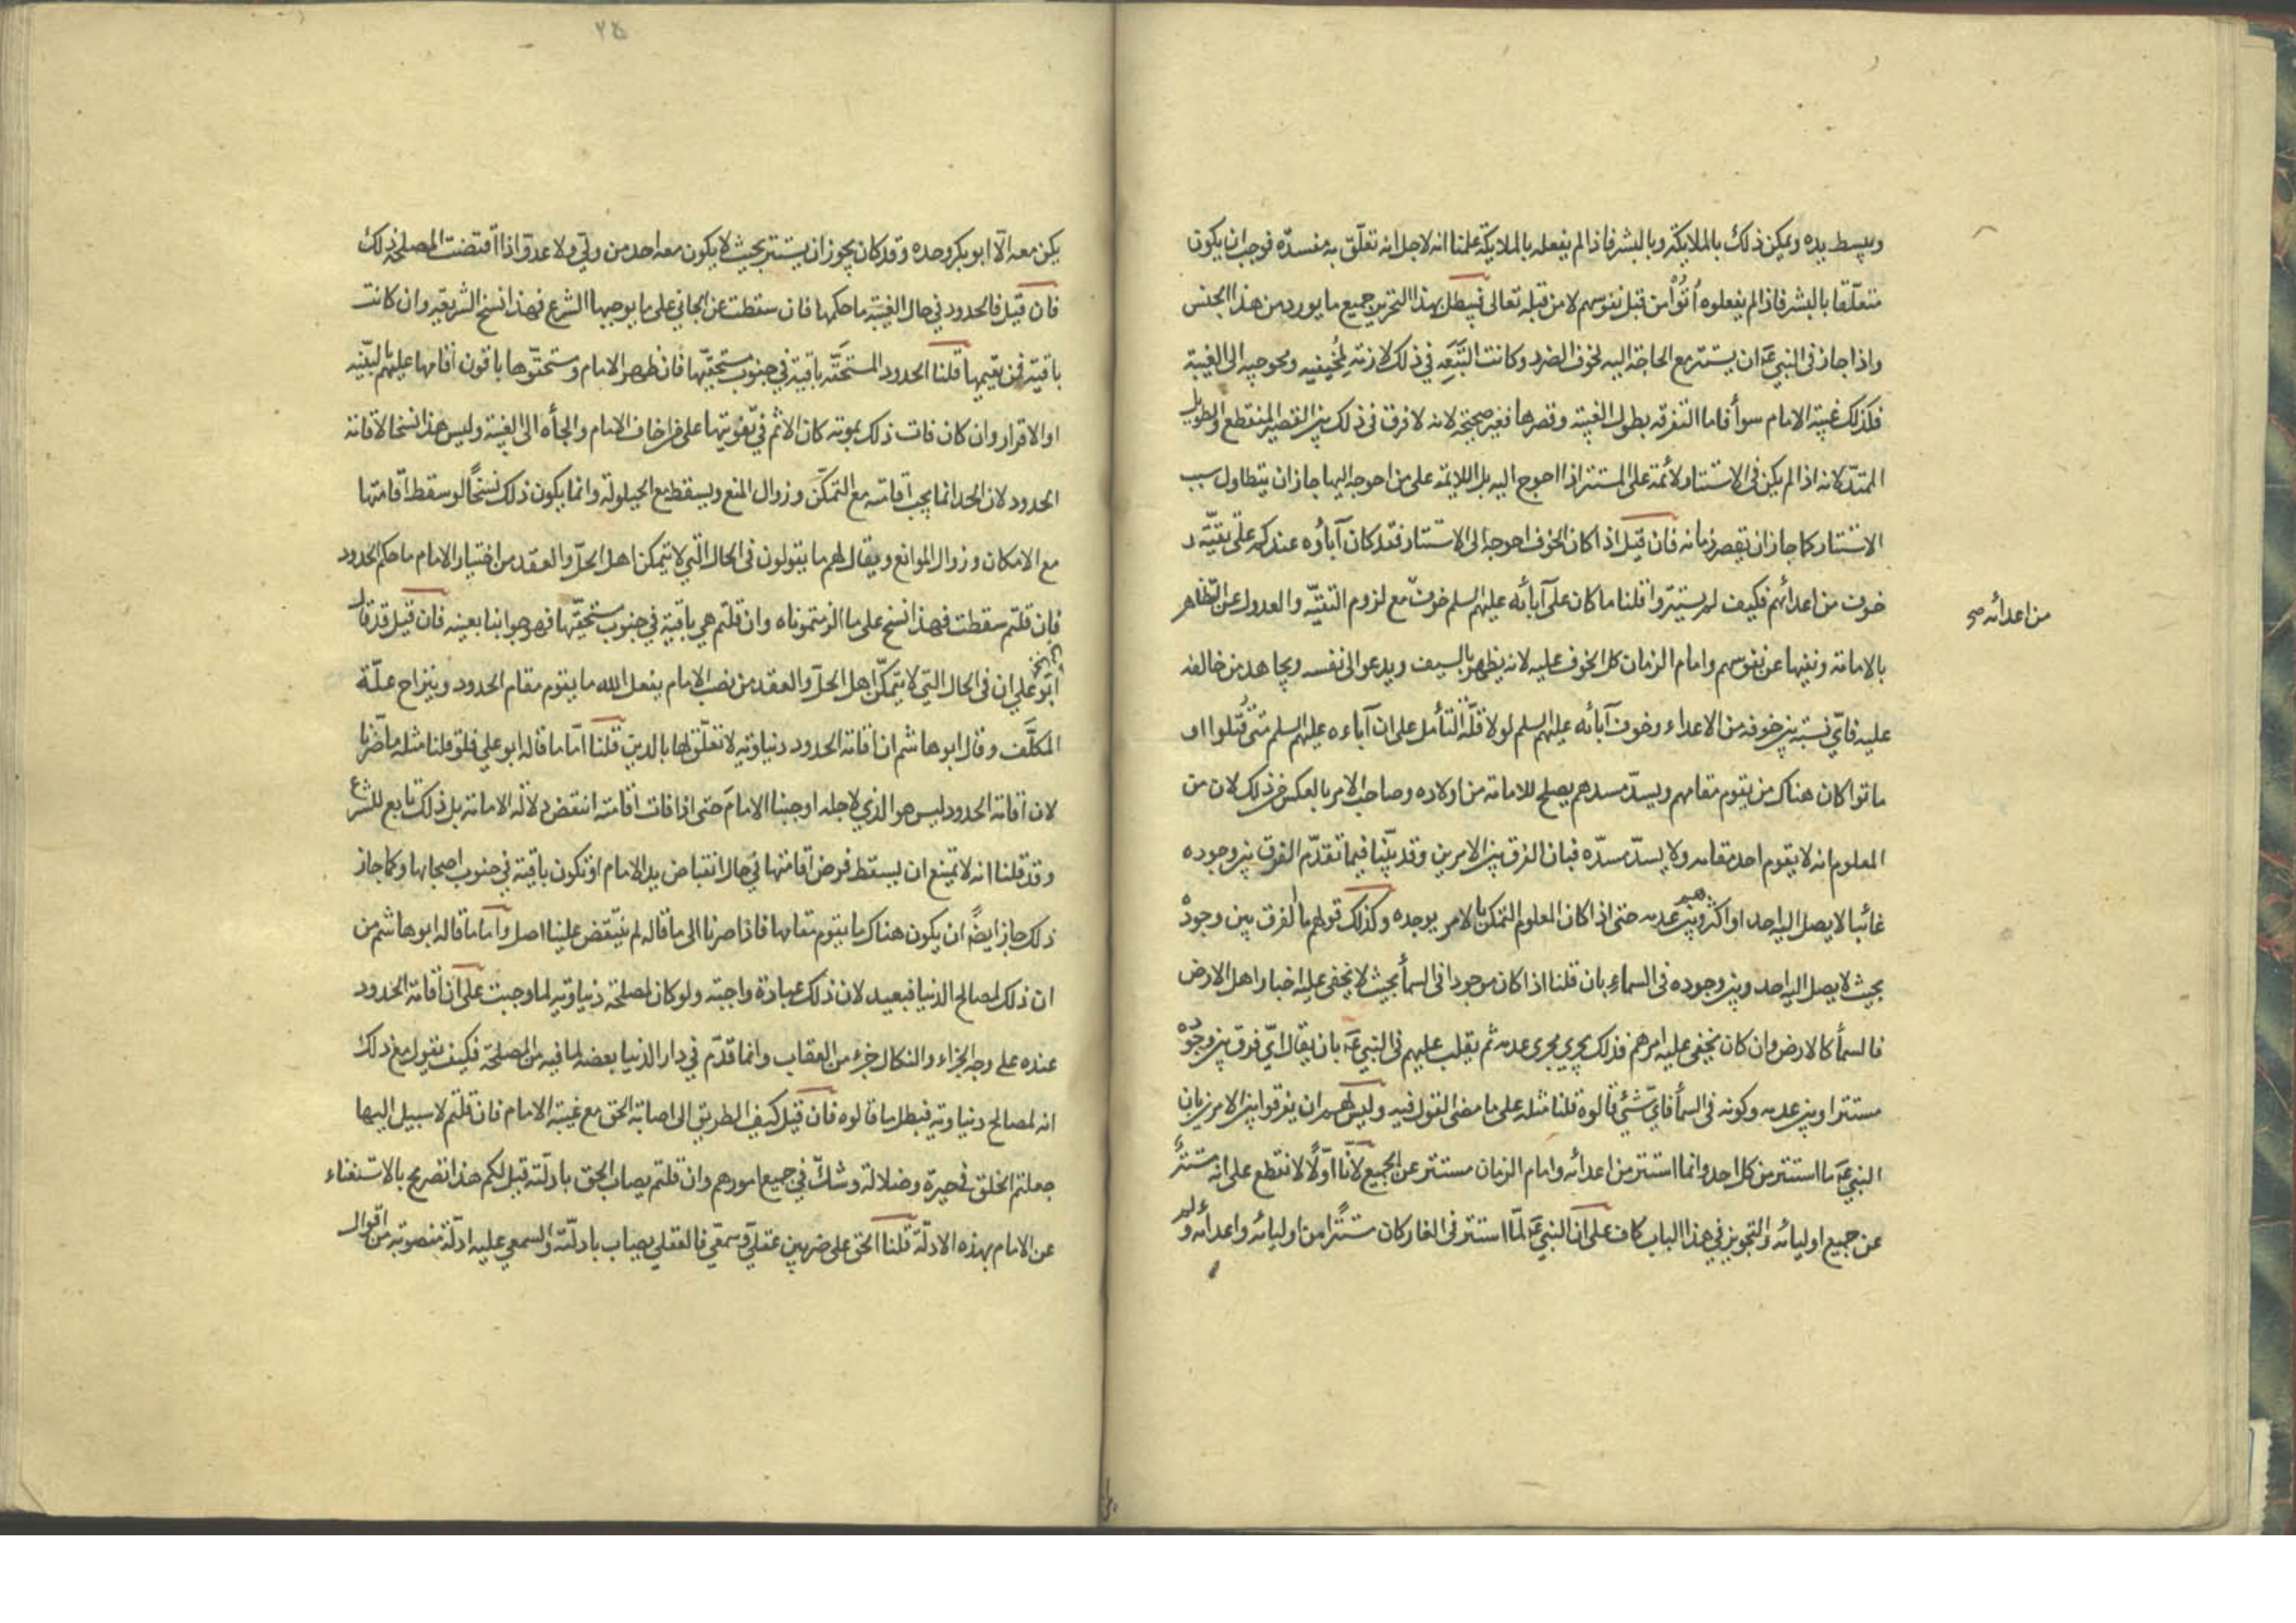 ويبسط يده ويمكن ذلك بالملايكة وبالبشر فاذا لم يفعله بالملايكة علمنا انه لاجل انه تعلق به مفسدة فوجب ان يكون
متعلقا بالبشر فاذا لم يفعلوه اُتُوْا من قبل نفوسهم لا من قبله تعالى فيبطل بهذا التحرير جميع ما يورد من هذا الجنس
واذا جاز فى النبي ع ان يستتر مع الحاجة اليه لخوف الضرر وكانت التَّبَعِه في ذلك لازمة لِمُخِيفيه ومحوجيه الى الغيبة
فكذلك غيبة الامام سوأ فاما التفرقه بطول الغيبة وقصرها فغير صحيحة لانه لا فرق فى ذلك بين القصير المنقطع والطويل
الممتدّ لانه اذا لم يكن فى الاستتار لائمة على المستتر اذا احوج اليه بل اللايمة على من احوجه اليها جاز ان يتطاول سبب
الاستتار كما جاز ان يقصر زمانه فان قيل اذا كان الخوف احوجه الى الاستتار فقد كان آباؤه عندكم على تقيّة و
خوف من اعدائهم فكيف لم يستتروا قلنا ما كان على آبائه عليهم السلم خوف مع لزوم التقيّة والعدول عن التظاهر
من اعدائه صح
بالامامة ونفيها عن نفوسهم وامام الزمان كل الخوف عليه لانه يظهر بالسيف ويدعو الى نفسه ويجاهد من خالفه
عليه فاىّ نسبة بين خوفه من الاعداء وخوف آبائه عليهم السلم لولا قلّة التأمل على ان آباءه عليهم السلم متى قُتلوا او
ماتوا كان هناك من يقوم مقامهم ويسدّ مسدهم يصلح للامامة من اولاده وصاحب الامر بالعكس من ذلك لان من
المعلوم انه لا يقوم احد مقامه ولا يسدّ مسدّه فبان الفرق بين الامرين وقد بيّنّا فيما تقدّم الفرق بين وجوده
غائبا لا يصل اليه احد او اكثرهم وبين عدمه حتى اذا كان المعلوم التمكن بالامر يوجده وكذلك قولهم ما الفرق بين وجوده
بحيث لا يصل اليه احد وبين وجوده فى السماء بان قلنا اذا كان موجودا فى السمأ بحيث لا يخفى عليه اخبار اهل الارض
فالسمأ كالارض وان كان يخفى عليه امرهم فذلك يجري مجرى عدمه ثم يقلب عليهم فى النبي ع بان يقال اىّ فرق بين وجوده
مستترا وبين عدمه وكونه فى السمأ فاىّ شئ قالوه قلنا مثله على ما مضى القول فيه وليس لهم ان يفرقوا بين الامرين بان
النبي ع ما استتر من كل احد وانما استتر من اعدائه وامام الزمان مستتر عن الجميع لانّا اوّلًا لا نقطع على انه مستترٌ
عن جميع اوليائه والتجويز في هذا الباب كاف على ان النبي ع لمّا استتر فى الغار كان مستترًا من اوليائه واعدائه ولم
يكن معه الّا ابو بكر وحده وقد كان يجوز ان يستتر بحيث لا يكون معه احد من ولي ولا عدوّ اذا اقتضت المصلحة ذلك
فان قيل فالحدود في حال الغيبة ما حكمها فان سقطت عن الجاني على ما يوجبها الشرع فهذا نسخ الشريعة وان كانت
باقية فمن يقيمها قلنا الحدود المستحقّه باقية في جنوب مستحقّيها فان ظهر الامام ومستحقّوها باقون اقامها عليهم بالبيّنه
او الاقرار وان كان فات ذلك بموته كان الاثم في تفويتها على من اخاف الامام والجأه الى الغيبة وليس هذا نسخا لاقامة
الحدود لان الحد انما يجب اقامته مع التمكّن وزوال المنع ويسقط مع الحيلولة وانما يكون ذلك نسخًا لو سقط اقامتها
مع الامكان وزوال الموانع ويقال لهم ما يقولون فى الحال التي لا يتمكن اهل الحلّ والعقد من اختيار الامام ما حكم الحدود
فان قلتم سقطت فهذا نسخ على ما الزمتموناه وان قلتم هي باقية في جنوب مستحقّيها فهو جوابنا بعينه فان قيل قد قال
ابو علي ان فى الحال التي لا يتمكّن اهل الحلّ والعقد من نصب الامام يفعل الله ما يقوم مقام الحدود وينزاح علّة
المكلَّف وقال ابو هاشم ان اقامة الحدود دنياويّه لا تعلّق لها بالدين قلنا امّا ما قاله ابو علي فلو قلنا مثله ما ضرّنا
لان اقامة الحدود ليس هو الذي لاجله اوجبنا الامامَ حتى اذا فات اقامته انتقض دلالة الامامة بل ذلك تابع للشرع
وقد قلنا انه لا يمتنع ان يسقط فرض اقامتها في حال انقباض يد الامام او تكون باقية في جنوب اصحابها وكما جاز
ذلك جاز ايضًا ان يكون هناك ما يقوم مقامها فاذا صرنا الى ما قاله لم ينتقض علينا اصل واما ما قاله ابو هاشم من
ان ذلك لمصالح الدنيا فبعيد لان ذلك عبادة واجبة ولو كان لمصلحة دنياويّه لما وجبت على ان اقامة الحدود
عنده على وجه الجزاء والنكال جزء من العقاب وانما قدّم في دار الدنيا بعضه لما فيه من المصلحة فكيف يقول مع ذلك
انه لمصالح دنياويّه فبطل ما قالوه فان قيل كيف الطريق الى اصابة الحق مع غيبة الامام فان قلتم لا سبيل اليها
جعلتم الخلق في حيرة وضلالة وشكّ في جميع امورهم وان قلتم يصاب الحق بادلّته قيل لكم هذا تصريح بالاستغناء
عن الامام بهذه الادلّة قلنا الحق على ضربين عقلي وسمعي فالعقلي يصاب بادلّته والسمعي عليه ادلّة منصوبة من اقوال